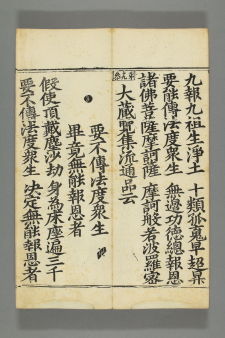 九報九祖生淨土　十類孤䰟早超昇
要能傳法度衆生　無邉功德總報恩
諸佛菩薩摩訶薩　摩訶般若波羅宻
大藏覽集流通品云
要不傳法度衆生
畢竟無能報恩者
假使頂戴塵沙劫　身為床座遍三千
要不傳法度衆生　決定無能報恩者